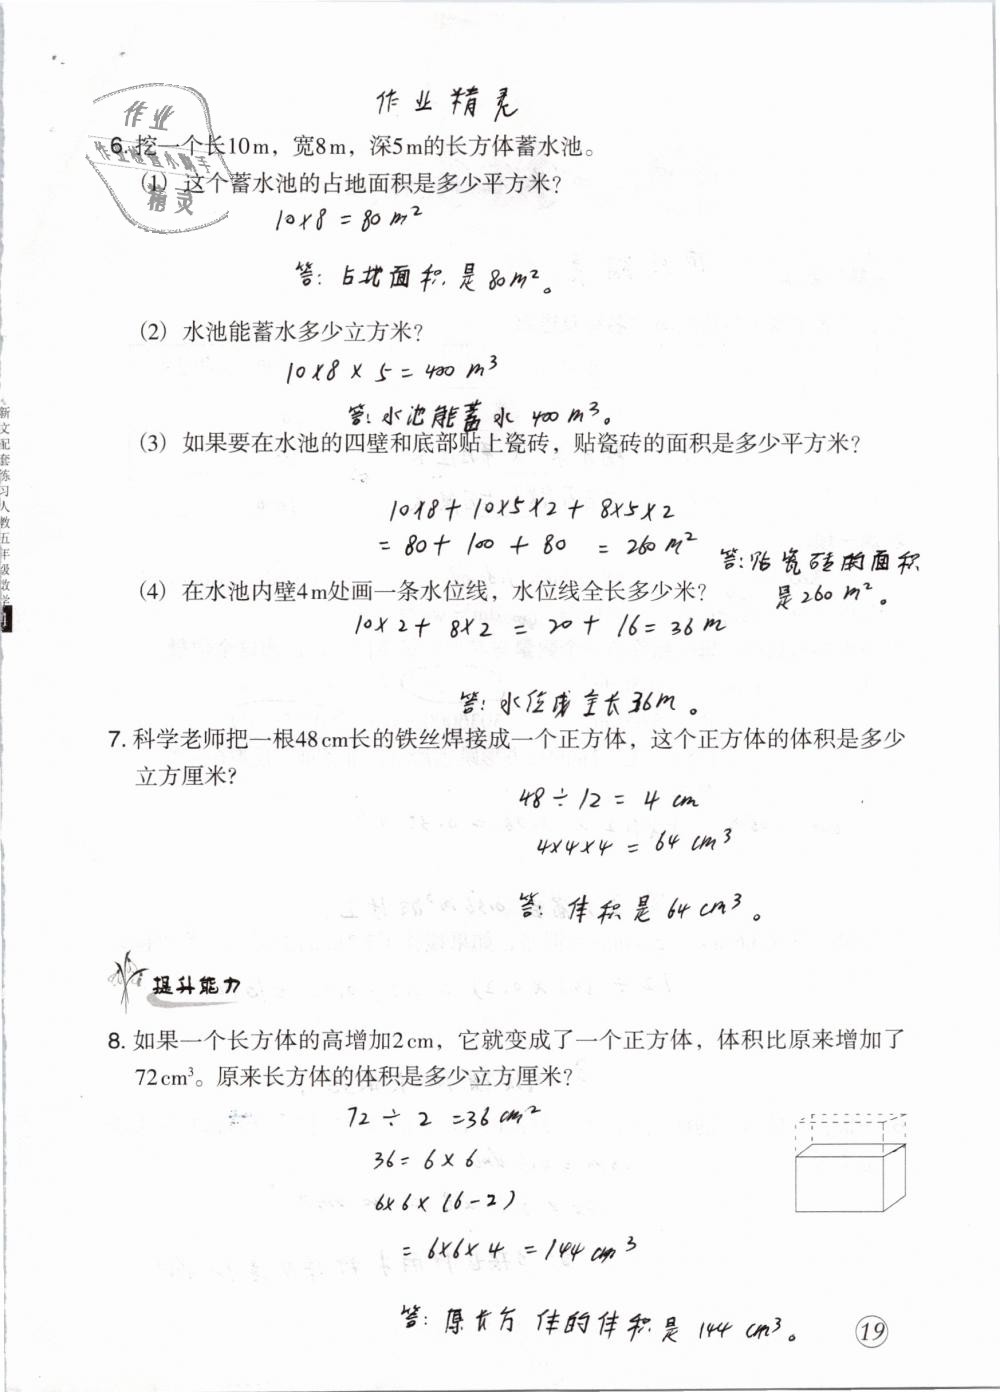 作业精灵
作业
作业检查小助手
精灵
6. 挖一个长10m，宽8m，深5m的长方体蓄水池。
（1）这个蓄水池的占地面积是多少平方米？
10×8=80m²
答：占地面积是80m²。
（2）水池能蓄水多少立方米？
10×8×5=400m³
答：水池能蓄水400m³。
（3）如果要在水池的四壁和底部贴上瓷砖，贴瓷砖的面积是多少平方米？
10×8+10×5×2+8×5×2
=80+100+80=260m²
答：贴瓷砖的面积
是260m²。
（4）在水池内壁4m处画一条水位线，水位线全长多少米？
10×2+8×2=20+16=36m
答：水位线全长36m。
7. 科学老师把一根48cm长的铁丝焊接成一个正方体，这个正方体的体积是多少
立方厘米？
48÷12=4cm
4×4×4=64cm³
答：体积是64cm³。
提升能力
8. 如果一个长方体的高增加2cm，它就变成了一个正方体，体积比原来增加了
72cm³。原来长方体的体积是多少立方厘米？
72÷2=36cm²
36=6×6
6×6×(6-2)
=6×6×4=144cm³
答：原长方体的体积是144cm³。
19
新文配套练习人教五年级数学